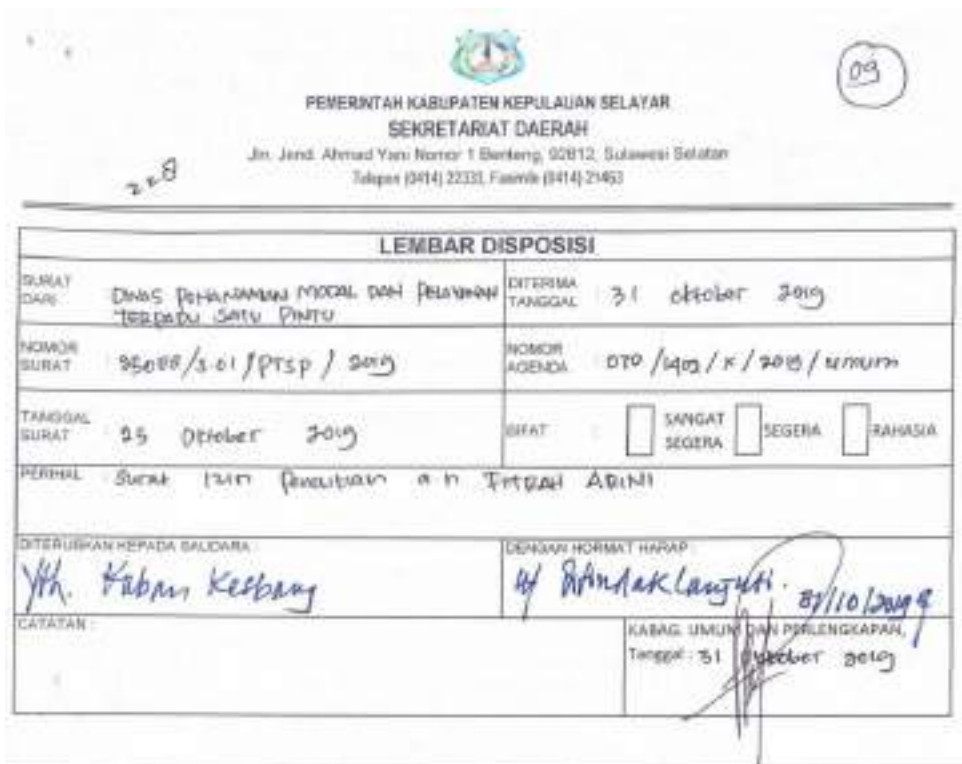 09
PEMERINTAH KABUPATEN KEPULAUAN SELAYAR
SEKRETARIAT DAERAH
Jln. Jend. Ahmad Yani Nomor 1 Benteng, 92812, Sulawesi Selatan
Telepon (0414) 22333, Faximile (0414) 21453
LEMBAR DISPOSISI
SURAT DARI : DINAS PENANAMAN MODAL DAN PELAYANAN
TERPADU SATU PINTU
DITERIMA TANGGAL : 31 oktober 2019
NOMOR SURAT : /S.01/PTSP/2019
NOMOR AGENDA : 070 / / X / 2019 / umum
TANGGAL SURAT : 25 Oktober 2019
SIFAT : SANGAT SEGERA SEGERA RAHASIA
PERIHAL : Surat Izin Penelitian a n FITRAH ADINI
DITERUSKAN KEPADA SAUDARA :
Yth. Kaban Kesbang
DENGAN HORMAT HARAP :
u/ ditindaklanjuti. 31/10/2019
CATATAN :
KABAG. UMUM DAN PERLENGKAPAN,
Tanggal : 31 Oktober 2019